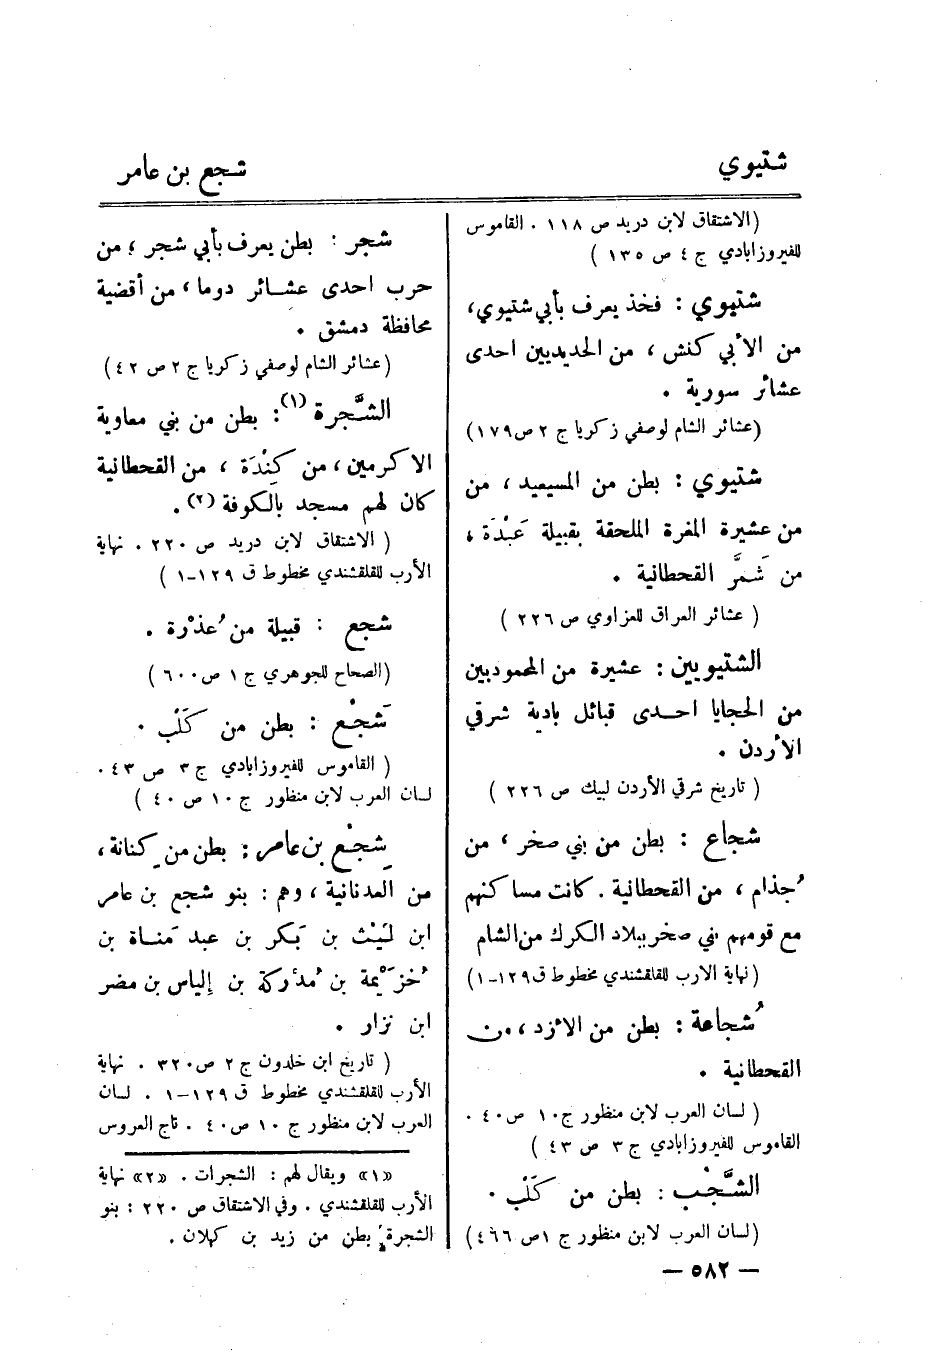 شتيوي
شجع بن عامر
(الاشتقاق لابن دريد ص ١١٨ . القاموس
للفيروزابادي ج ٤ ص ١٣٥ )
شتيوي : فخذ يعرف بأبي شتيوي،
من الأبي كنش ، من الحديديين احدى
عشائر سورية .
(عشائر الشام لوصفي زكريا ج ٢ ص١٧٩)
شتيوي : بطن من المسيعيد ، من
من عشيرة المغرة الملحقة بقبيلة عَبْدَة ،
من شَمَّر القحطانية .
( عشائر العراق للعزاوي ص ٢٢٦ )
الشتيويين : عشيرة من المحموديين
من الحجايا احــدى قبائل بادية شرقي
الأردن .
( تاريخ شرقي الأردن لبيك ص ٢٢٦ )
شجاع : بطن من بني صخر ، من
جُذام ، من القحطانية . كانت مساكنهم
مع قومهم بني صخر ببلاد الكرك من الشام
(نهاية الارب للقلقشندي مخطوط ق١٢٩-١)
شُجاعة : بطن من الأزد ، من
القحطانية .
( لسان العرب لابن منظور ج١٠ ص٤٠ .
القاموس للفيروزابادي ج ٣ ص ٤٣ )
الشَّجْب : بطن من كَلْب .
(لسان العرب لابن منظور ج ١ ص ٤٦٦)
شجر : بطن يعرف بأبي شجر ، من
حرب احدى عشــائر دوما ، من أقضية
محافظة دمشق .
(عشائر الشام لوصفي زكريا ج ٢ ص ٤٢)
الشَّجرة (١) : بطن من بني معاوية
الاكرمين ، من كِنْدَة ، من القحطانية
كان لهم مسجد بالكوفة (٢) .
( الاشتقاق لابن دريد ص ٢٢٠ . نهاية
الأرب للقلقشندي مخطوط ق ١٢٩-١ )
شجع : قبيلة من عُذْرة .
(الصحاح للجوهري ج ١ ص ٦٠٠ )
شَجْع : بطن من كَلْب .
( القاموس للفيروزابادي ج ٣ ص ٤٣ .
لسان العرب لابن منظور ج ١٠ ص ٤٠ )
شِجْع بن عامر : بطن من كِنانة ،
من العدنانية ، وهم : بنو شجع بن عامر
ابن لَيْث بن بَكر بن عبد مَنــاة بن
خُزَيْمة بن مُدْركة بن إلياس بن مضر
ابن نزار .
( تاريخ ابن خلدون ج ٢ ص٣٢٠ . نهاية
الأرب للقلقشندي مخطوط ق ١٢٩-١ . لسان
العرب لابن منظور ج ١٠ ص ٤٠ . تاج العروس
«١» ويقال لهم : الشجرات . «٢» نهاية
الأرب للقلقشندي . وفي الاشتقاق ص ٢٢٠ : بنو
الشجرة بطن من زيد بن كهلان .
— ٥٨٢ —